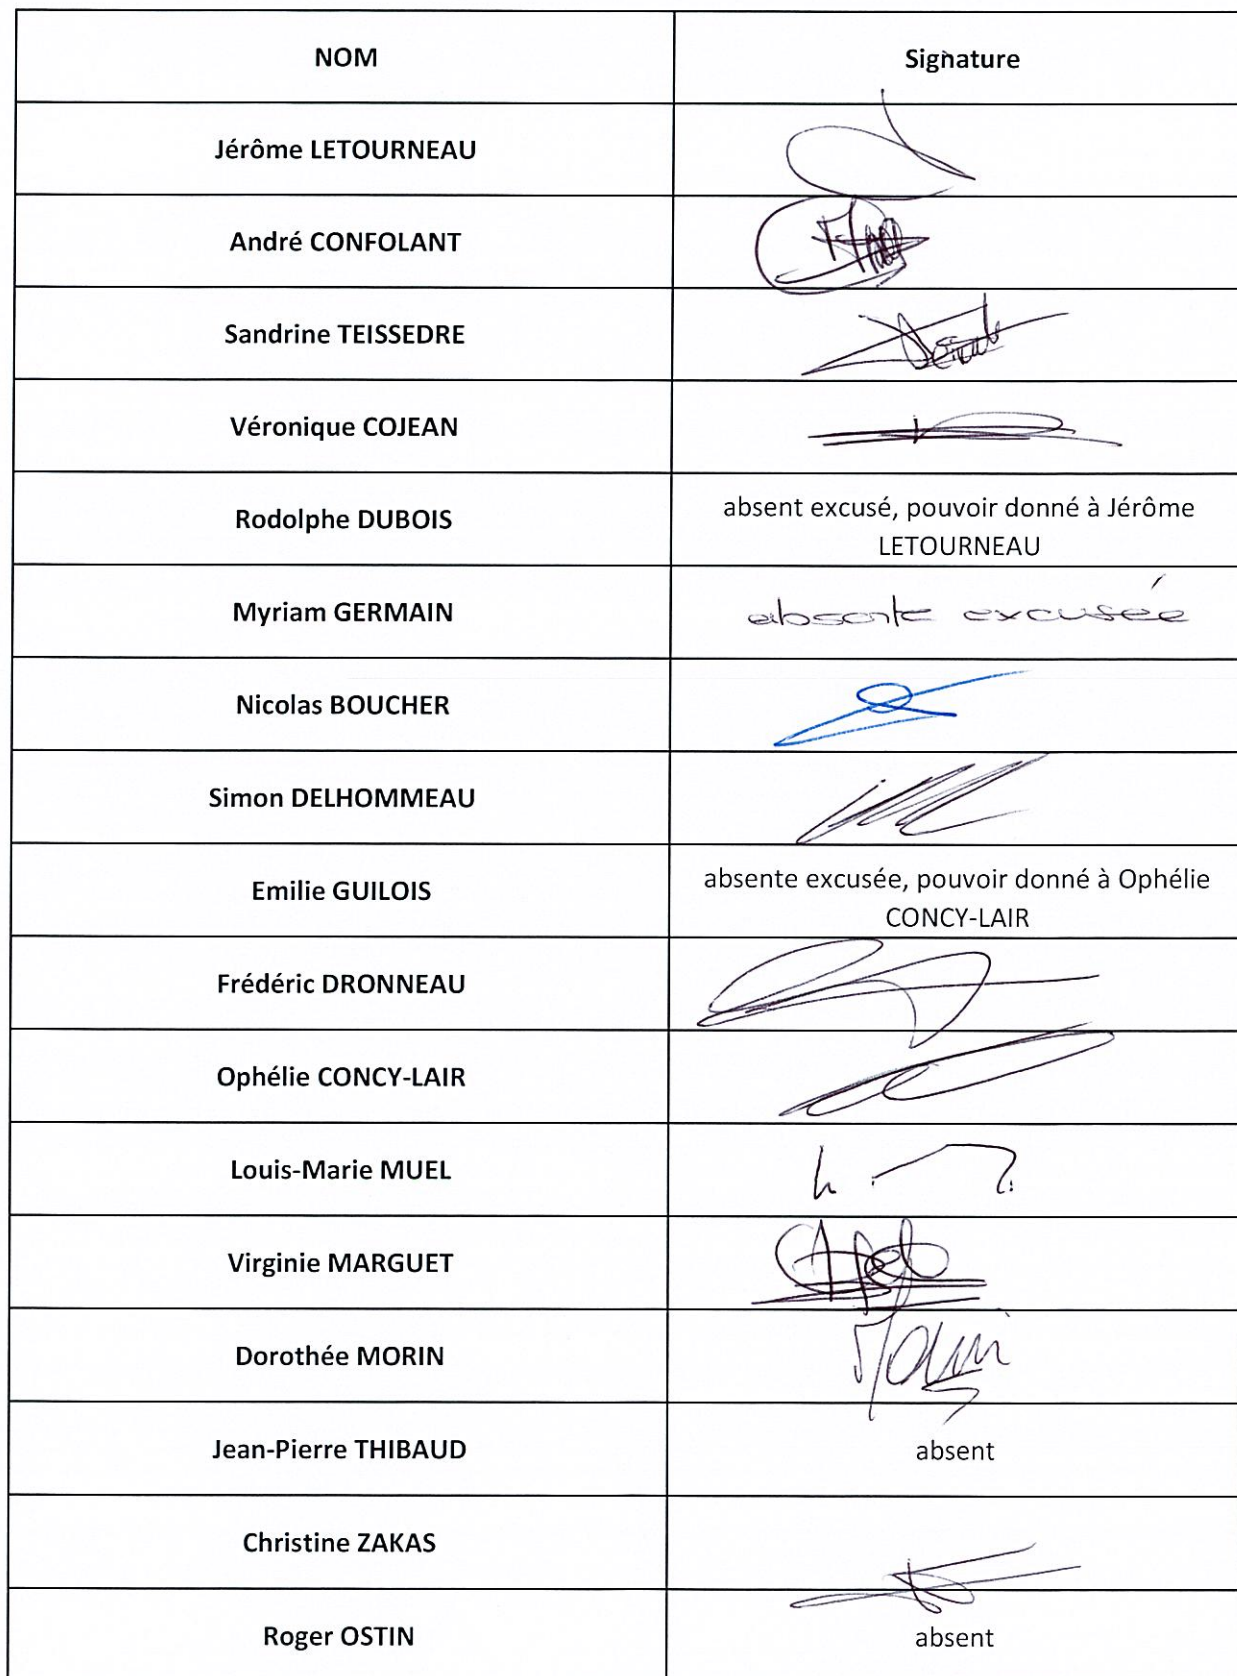 NOM Signature
Jérôme LETOURNEAU
André CONFOLANT
Sandrine TEISSEDRE
Véronique COJEAN
Rodolphe DUBOIS absent excusé, pouvoir donné à Jérôme
LETOURNEAU
Myriam GERMAIN absente excusée
Nicolas BOUCHER
Simon DELHOMMEAU
Emilie GUILOIS absente excusée, pouvoir donné à Ophélie
CONCY-LAIR
Frédéric DRONNEAU
Ophélie CONCY-LAIR
Louis-Marie MUEL
Virginie MARGUET
Dorothée MORIN
Jean-Pierre THIBAUD absent
Christine ZAKAS
Roger OSTIN absent